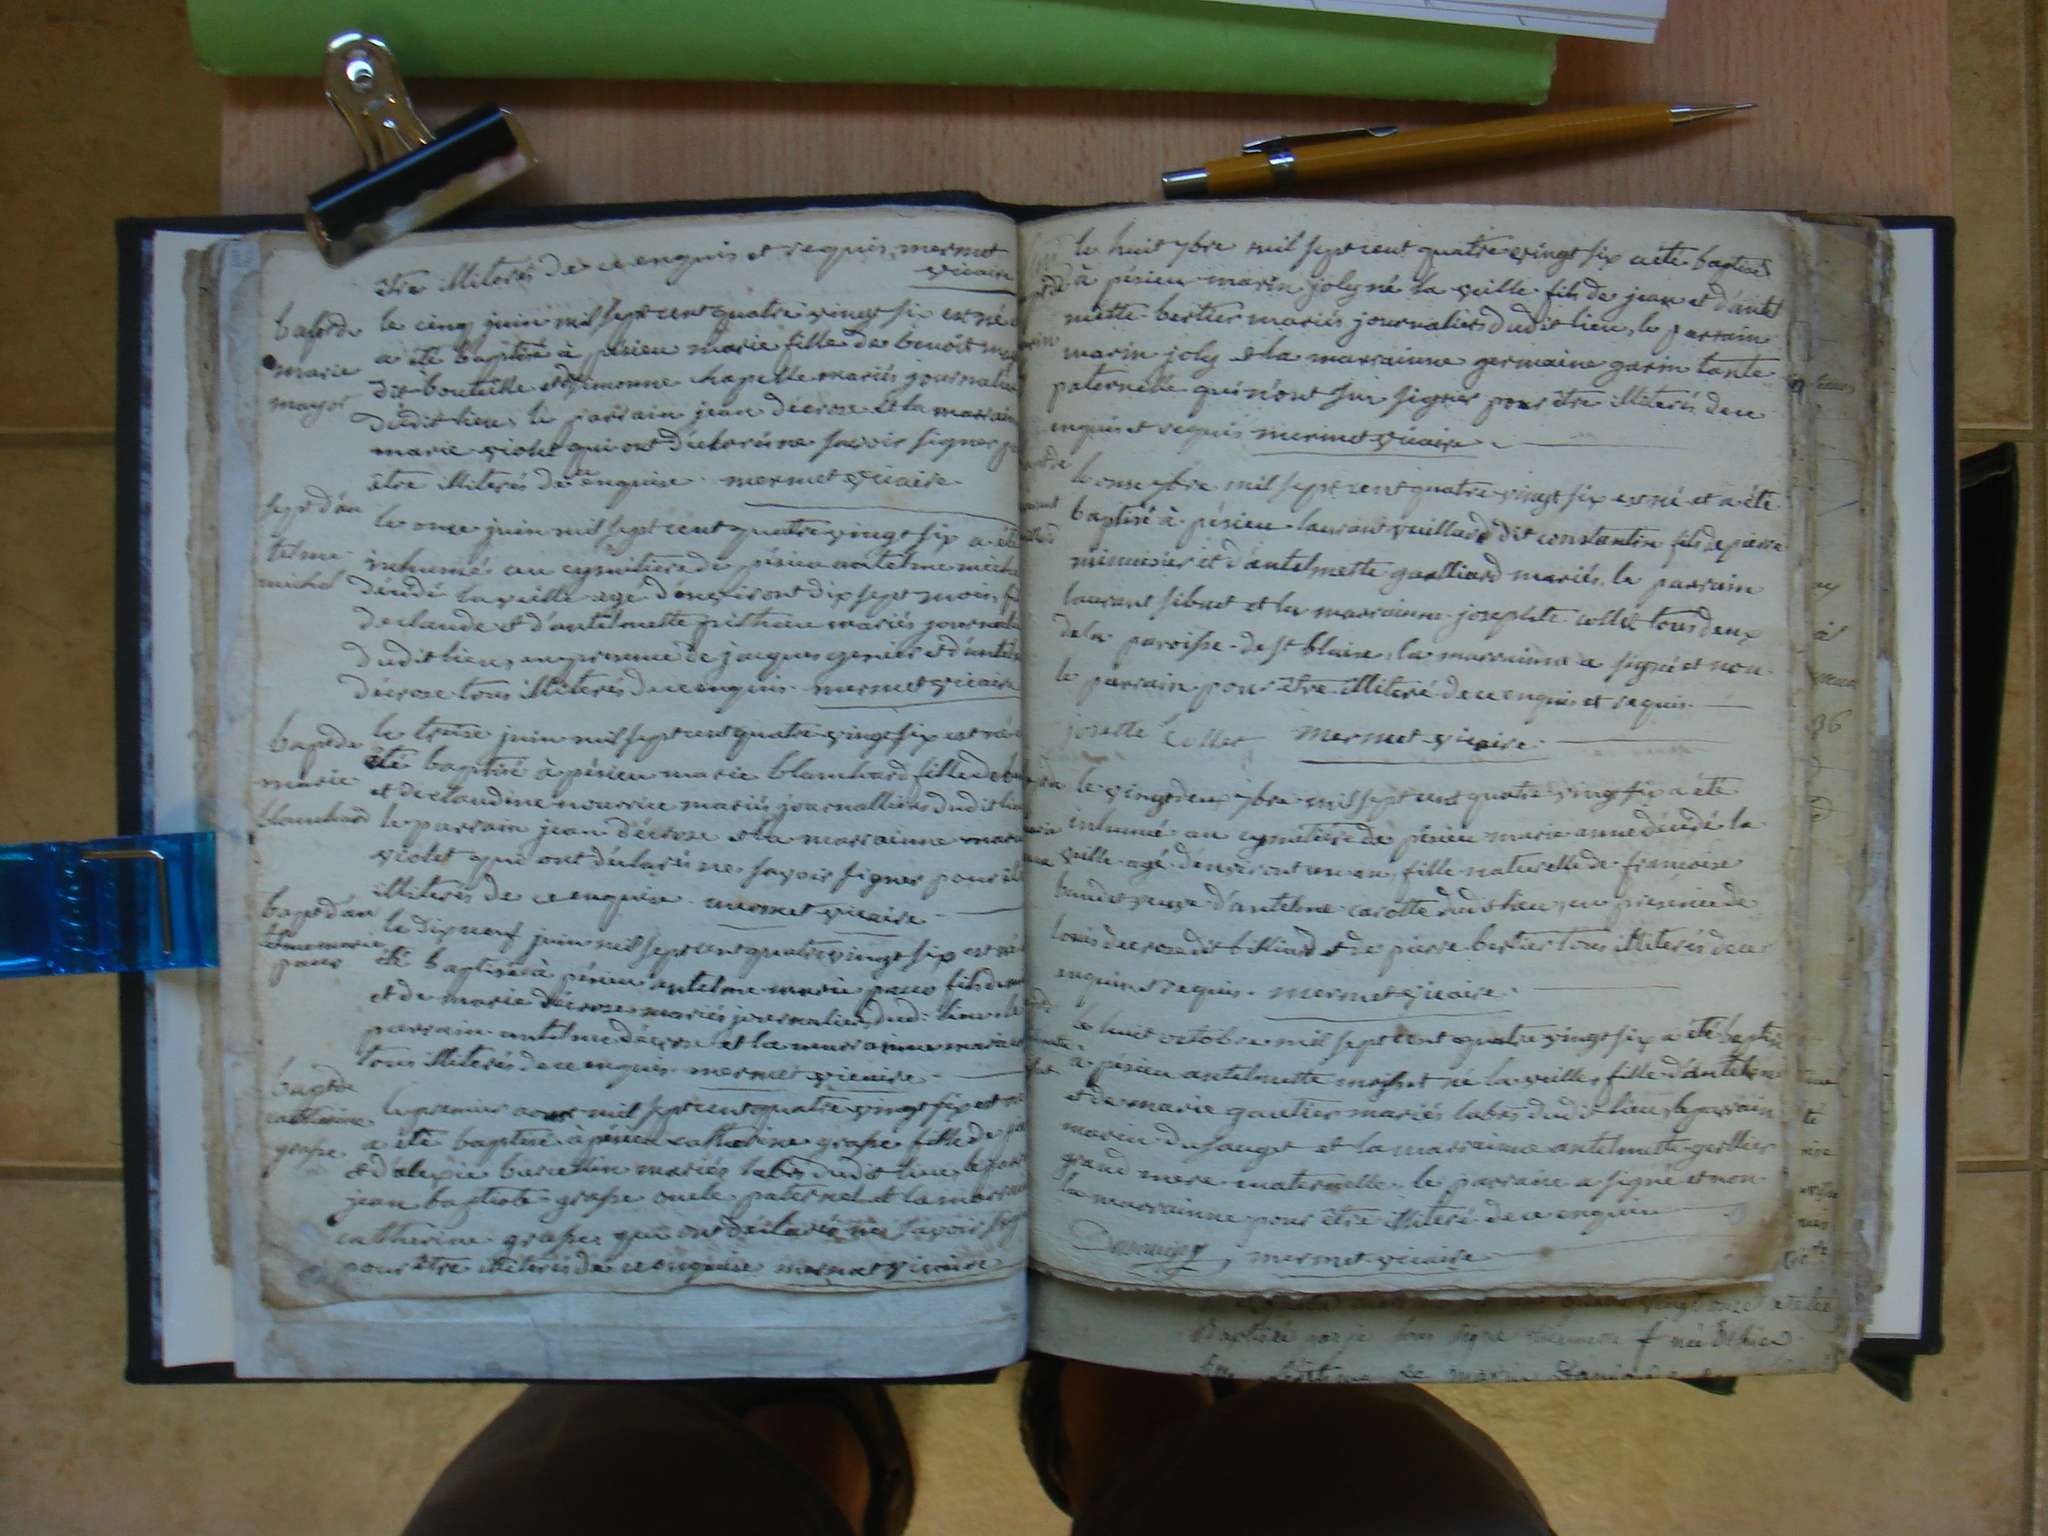 être illiterés de ce enquis et requis, mermet
vicaire
bapt de
marie
mayot
le cinq juin mil sept cent quatre vingt six est né
a été baptisé à pésieu marie fille de benoit
dit bouteille et simonne chapelle mariés journaliers
dudit lieu, le parrain jean décrose et la marrainne
marie violet qui ont déclarés ne savoir signer
être illiterés de ce enquise. mermet vicaire
sept d'an
telme
michel
le onze juin mil sept cent quatre vingt six a été
inhumé au cymitiere de pésieu antelme
décédé la veille agé d'environt dix sept mois,
de claude et d'antelmette mariés
dudit lieu, en presence de jacques et d'antelme
décrose tous illiterés de ce enquis. mermet vicaire
bapt de
marie
blanchard
le treise juin mil sept cent quatre vingt six est né
été baptisé à pésieu marie blanchard fille de
et de claudine nourrice mariés journalliers dudit lieu
le parrain jean décrose et la marrainne
violet qui ont déclarés ne savoir signer pour être
illiterés de ce enquise. mermet vicaire.
bapt d'an
telme marie
le dix neuf juin mil sept cent quatre vingt six est né
été baptisé à pésieu antelme marie fils de
et de marie décrose mariés journaliers dud: lieu, le
parrain antelme décrose et la marrainne marie
tous illiterés de ce enquis. mermet vicaire.
bapt de
catherine
grasse
le premier aout mil sept cent quatre vingt six est né
a été baptisé à pésieu catherine grasse fille de
et d'alexie mariés labrs dudit lieu, le parrain
jean baptiste grasse oncle paternel et la marrainne
catherine grasse qui ont déclarés ne savoir signer
pour être illiterés de ce enquise mermet vicaire
le huit 7bre mil sept cent quatre vingt six a été baptisé
à pésieu marin joly né la veille fils de jean et d'antel
mette bertier mariés journaliers dudit lieu, le parrain
marin joly et la marrainne germaine garin tante
paternelle qui n'ont sçu signer pour être illiterés de ce
enquis et requis mermet vicaire
le onse 7bre mil sept cent quatre vingt six est né et a été
baptisé à pésieu laurant vuillard dit constantin fils de pierre
menuisier et d'antelmette mariés, le parrain
laurant sibuet et la marrainne josephte collet tous deux
de la paroisse de st blaise, la marrainne a signé et non
le parrain pour être illiteré de ce enquis et requis.
josette Collet mermet vicaire.
le vingt deux 7bre mil sept cent quatre vingt six a été
inhumé au cymitiere de pésieu marie anne décédé la
veille agé d'environt un an, fille naturelle de francoise
veuve d'antelme carotte dudit lieu, en présence de
louis decrose dit billiard et de pierre bertier tous illiterés de ce
enquis et requis. mermet vicaire.
le huit octobre mil sept cent quatre vingt six a été baptisé
à pésieu antelmette né la veille, fille d'antelme
et de marie gautier mariés labrs dudit lieu, le parrain
marin dusauget et la marrainne antelmette
grand mere maternelle, le parrain a signé et non
la marrainne pour être illiteré de ce enquise
mermet vicaire